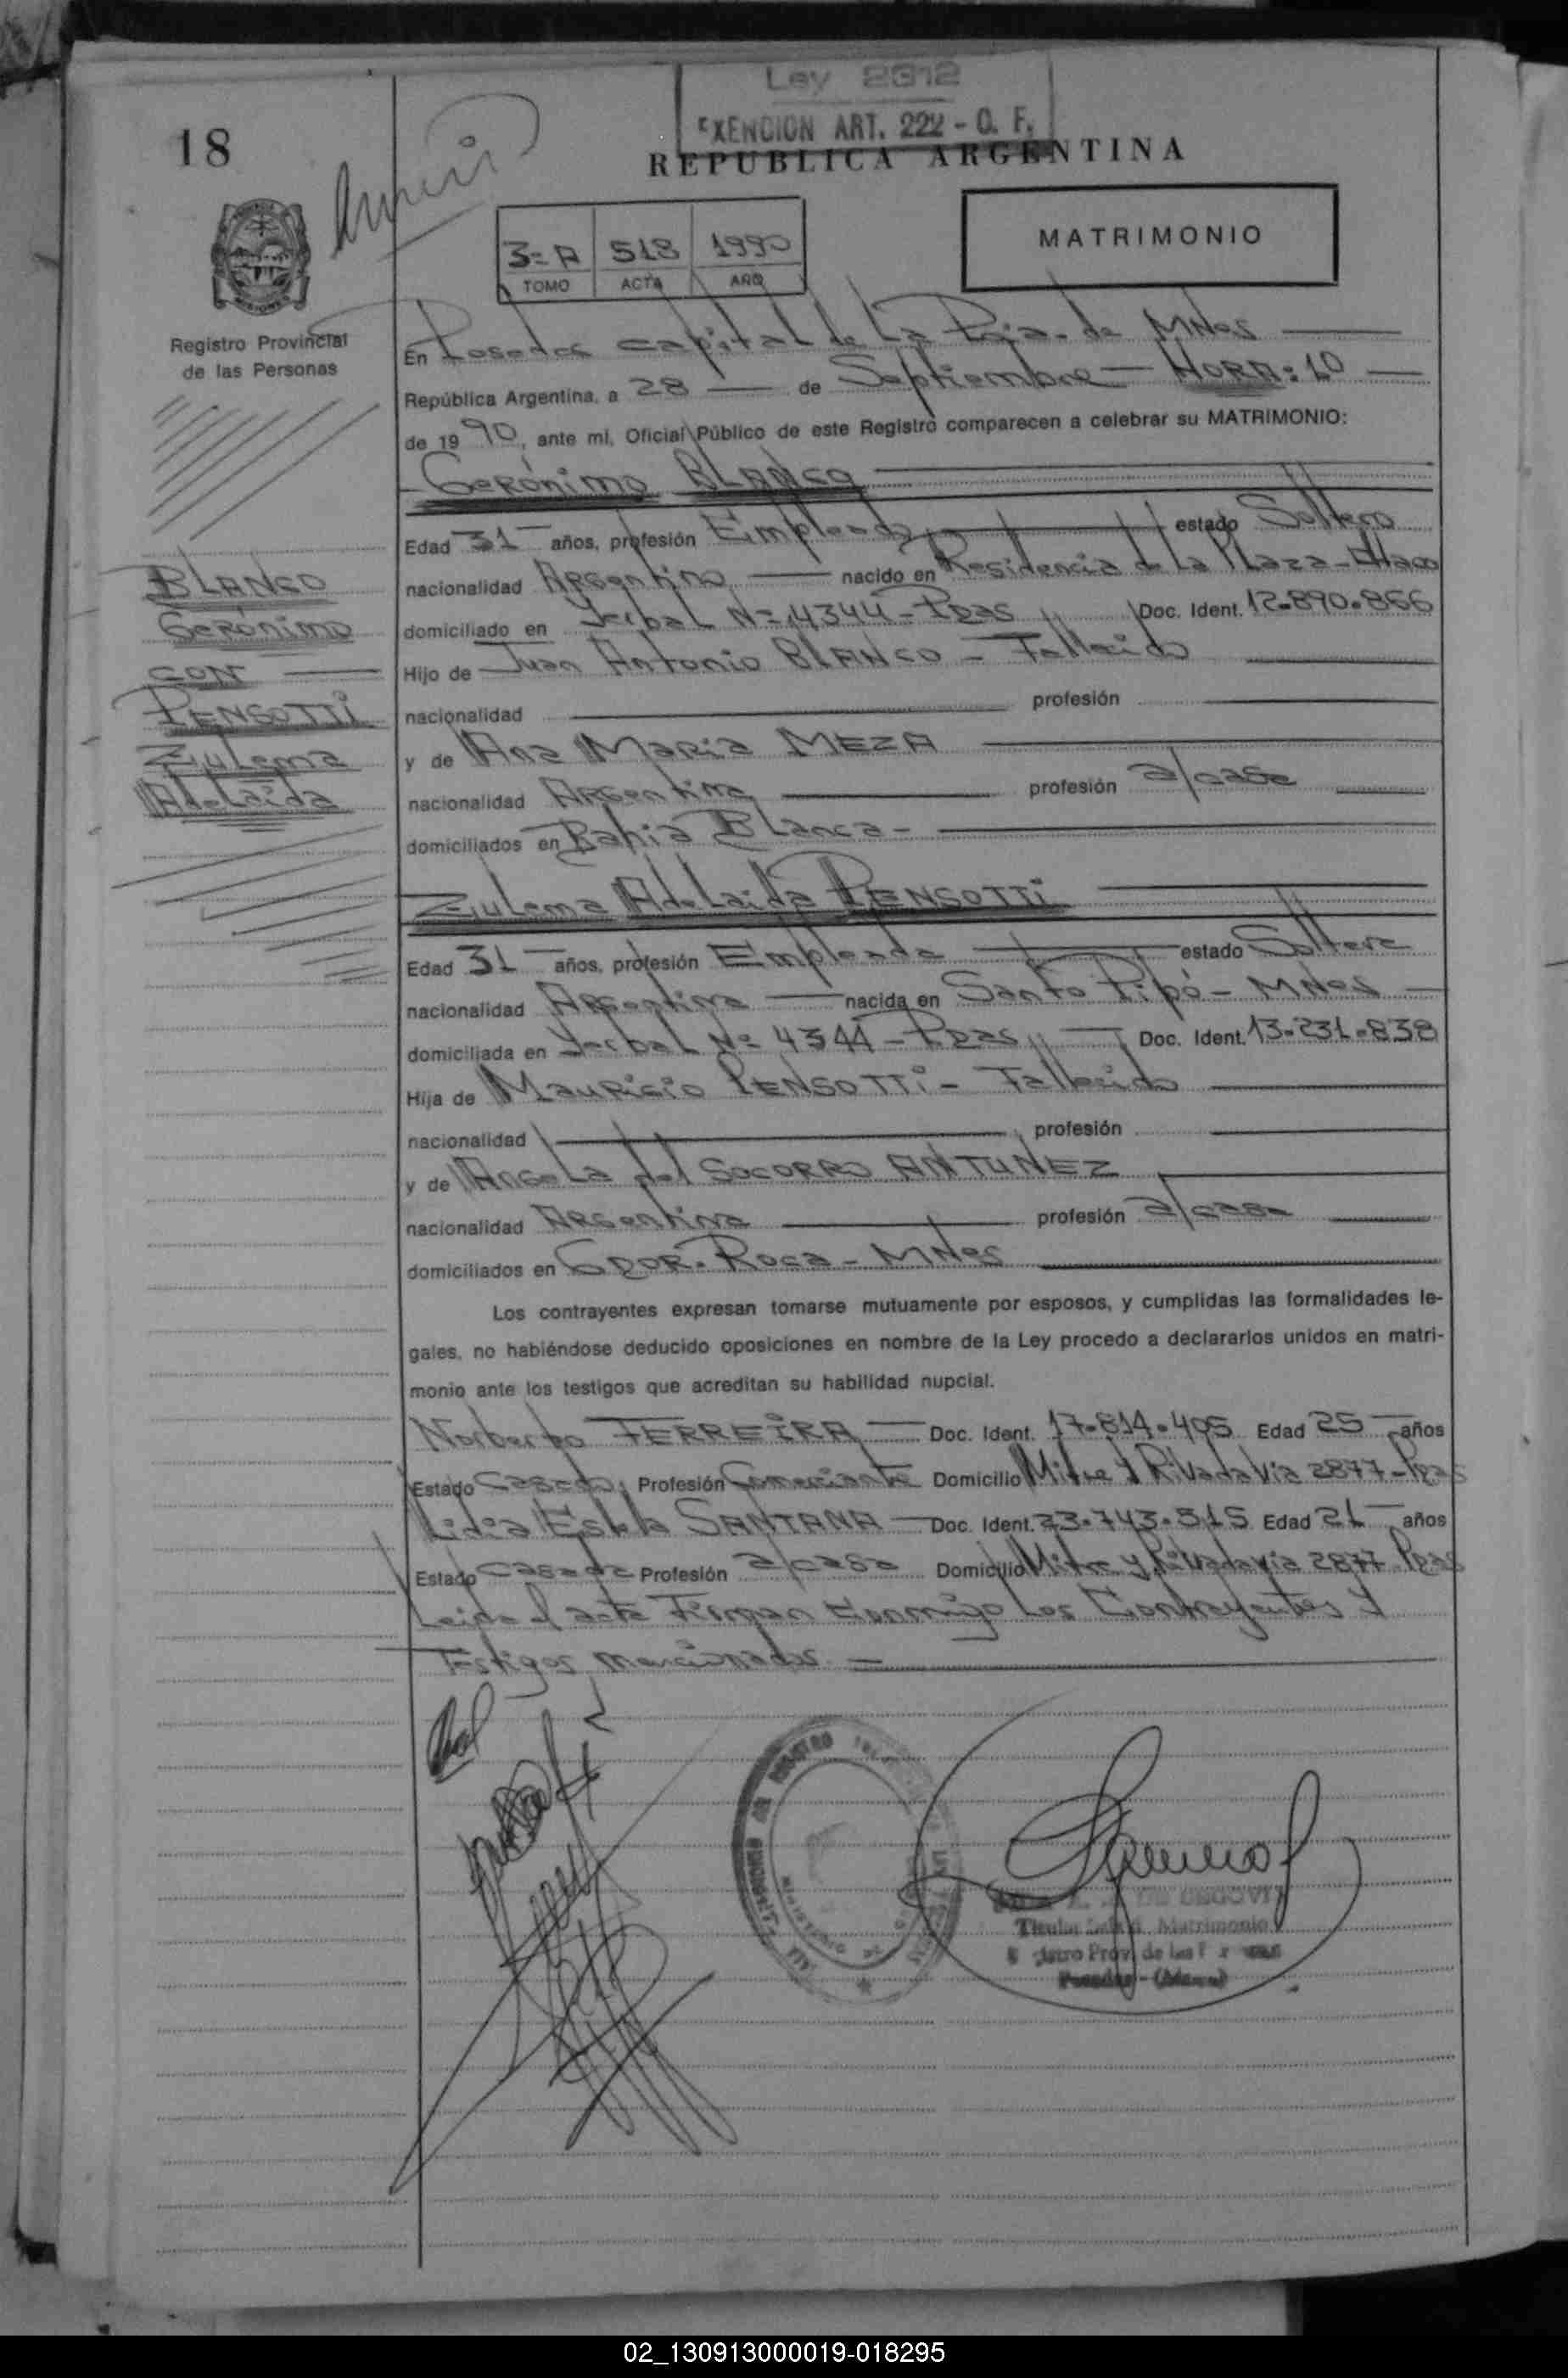 Ley 2312
EXENCION ART. 222 - O. F.
18
REPUBLICA ARGENTINA
MATRIMONIO
3=A 518 1990
TOMO ACTA AÑO
Registro Provincial
de las Personas
En Posadas capital de La Pcia. de MNes
República Argentina, a 28 de Septiembre - HORA: 10
de 1990, ante mi, Oficial Público de este Registro comparecen a celebrar su MATRIMONIO:
Gerónimo BLANCO
Edad 31 años, profesión Empleado estado Soltero
nacionalidad Argentino nacido en Residencia de La Plaza - Chaco
domiciliado en Yerbal N= 4344 - Pdas Doc. Ident. 12.890.866
Hijo de Juan Antonio BLANCO - Fallecido
nacionalidad profesión
y de Ana Maria MEZA
nacionalidad Argentina profesión a/casa
domiciliados en Bahia Blanca -
BLANCO
Gerónimo
CON
PENSOTTI
Zulema
Adelaida
Zulema Adelaida PENSOTTI
Edad 31 años, profesión Empleada estado Soltera
nacionalidad Argentina nacida en Santo Pipó - MNes
domiciliada en Yerbal N= 4344 - Pdas Doc. Ident. 13.231.838
Hija de Mauricio PENSOTTI - Fallecido
nacionalidad profesión
y de Angela del SOCORRO ANTUNEZ
nacionalidad Argentina profesión a/casa
domiciliados en GDOR. Roca - MNes
Los contrayentes expresan tomarse mutuamente por esposos, y cumplidas las formalidades le-
gales, no habiéndose deducido oposiciones en nombre de la Ley procedo a declararlos unidos en matri-
monio ante los testigos que acreditan su habilidad nupcial.
Norberto FERREIRA Doc. Ident. 17.814.405 Edad 25 años
Estado Casado Profesión Comerciante Domicilio Mitre y Rivadavia 2877 - Pdas
Lidia Estela SANTANA Doc. Ident. 23.743.515 Edad 21 años
Estado Casada Profesión a/casa Domicilio Mitre y Rivadavia 2877 Pdas
Leida el acta Firman Conmigo Los Contrayentes y
Testigos mencionados.
DE SEGOVIA
Titular Matrimonio
Prov. de las
Posadas - (Mnes)
02_130913000019-018295